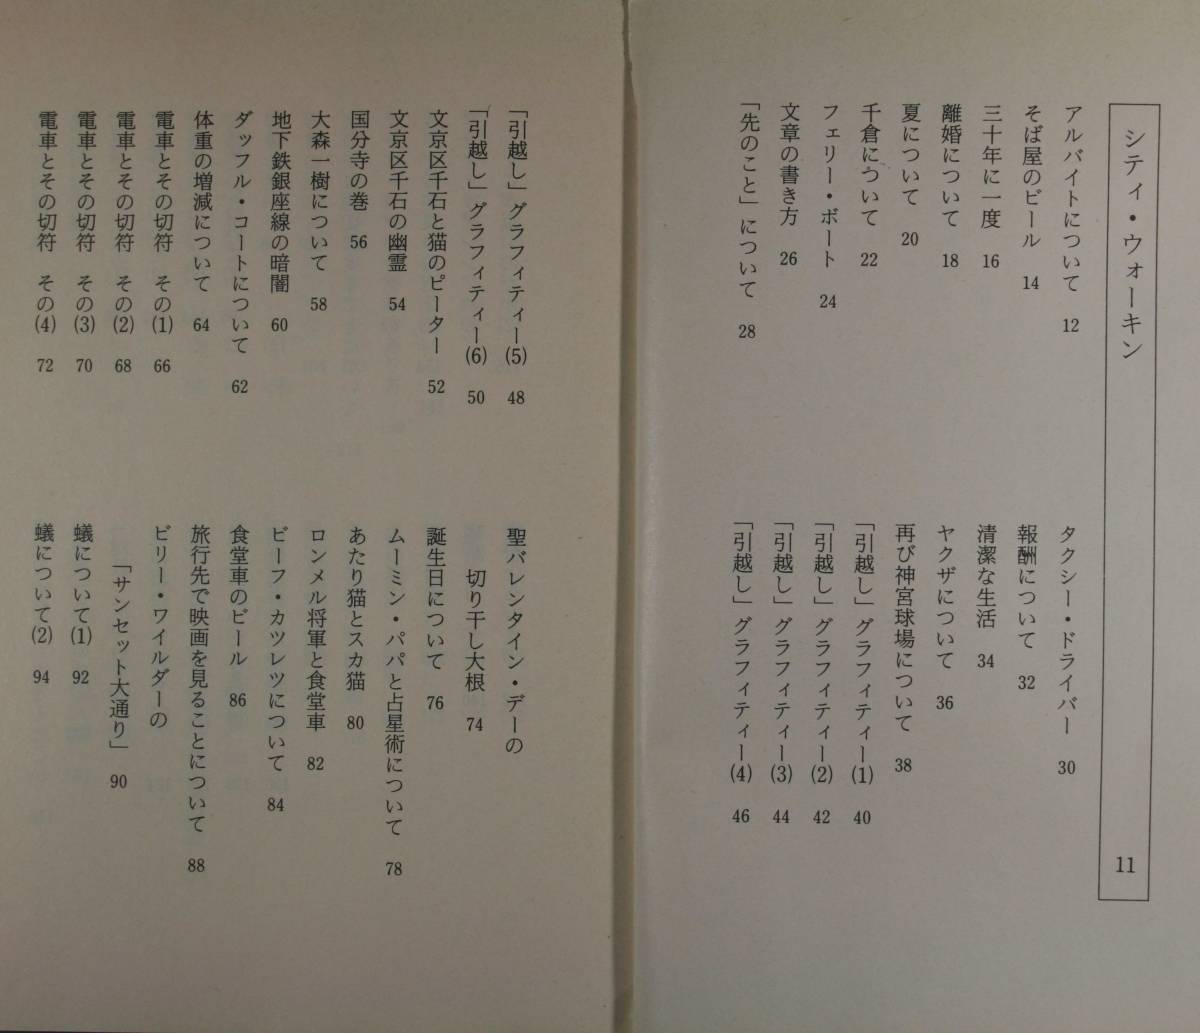 シティ・ウォーキン 11
アルバイトについて 12
そば屋のビール 14
三十年に一度 16
離婚について 18
夏について 20
千倉について 22
フェリー・ボート 24
文章の書き方 26
「先のこと」について 28
タクシー・ドライバー 30
報酬について 32
清潔な生活 34
ヤクザについて 36
再び神宮球場について 38
「引越し」グラフィティー(1) 40
「引越し」グラフィティー(2) 42
「引越し」グラフィティー(3) 44
「引越し」グラフィティー(4) 46
「引越し」グラフィティー(5) 48
「引越し」グラフィティー(6) 50
文京区千石と猫のピーター 52
文京区千石の幽霊 54
国分寺の巻 56
大森一樹について 58
地下鉄銀座線の暗闇 60
ダッフル・コートについて 62
体重の増減について 64
電車とその切符 その(1) 66
電車とその切符 その(2) 68
電車とその切符 その(3) 70
電車とその切符 その(4) 72
聖バレンタイン・デーの
切り干し大根 74
誕生日について 76
ムーミン・パパと占星術について 78
あたり猫とスカ猫 80
ロンメル将軍と食堂車 82
ビーフ・カツレツについて 84
食堂車のビール 86
旅行先で映画を見ることについて 88
ビリー・ワイルダーの
「サンセット大通り」 90
蟻について(1) 92
蟻について(2) 94